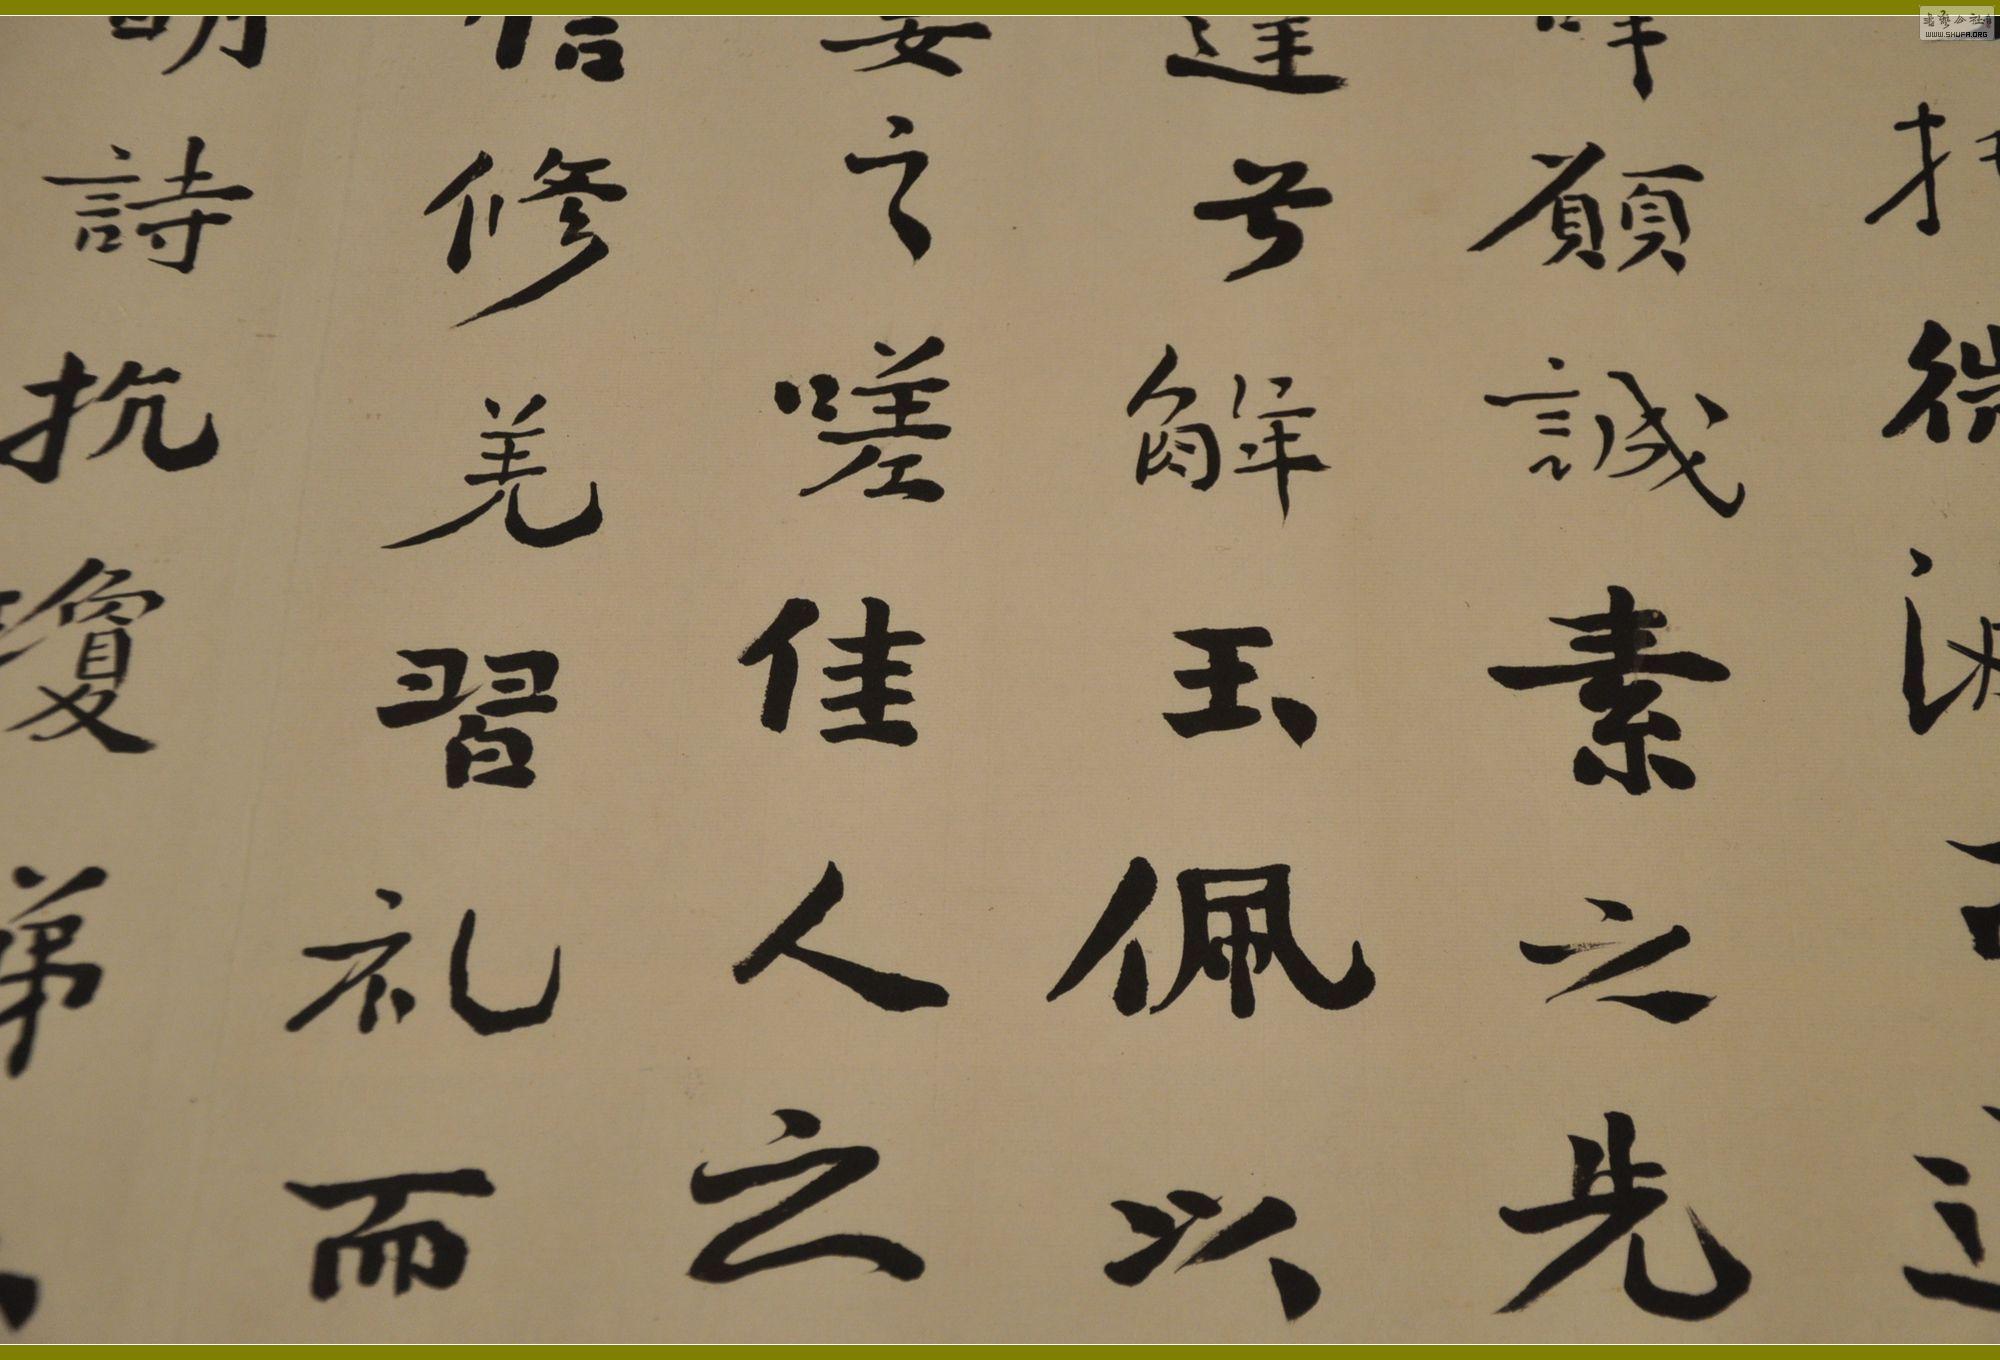 托微波
辞願誠素之先
達兮解玉佩以
要之嗟佳人之
信修羌習礼而
明詩抗瓊
書藝公社
WWW.SHUFA.ORG